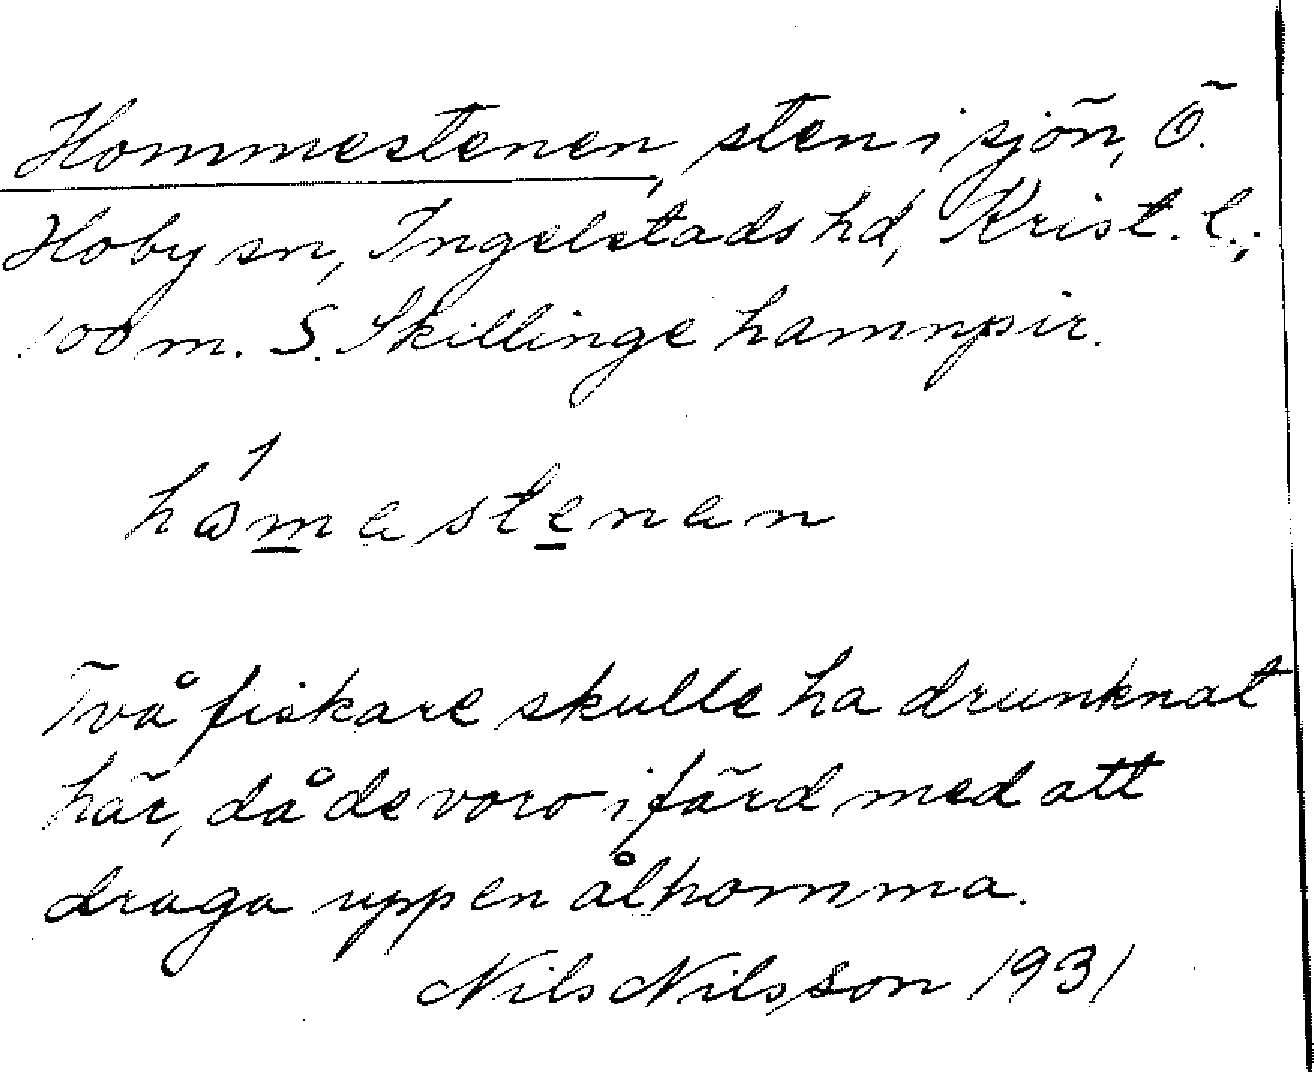 Hommestenen, sten i sjön, Ö.
Hoby sn, Ingelstads hd, Krist. l.;
100 m. S. Skillinge hamnpir.
håmastenan
Två fiskare skulle ha drunknat
här, då de voro i färd med att
draga upp en ålhomma.
Nils Nilsson 1931